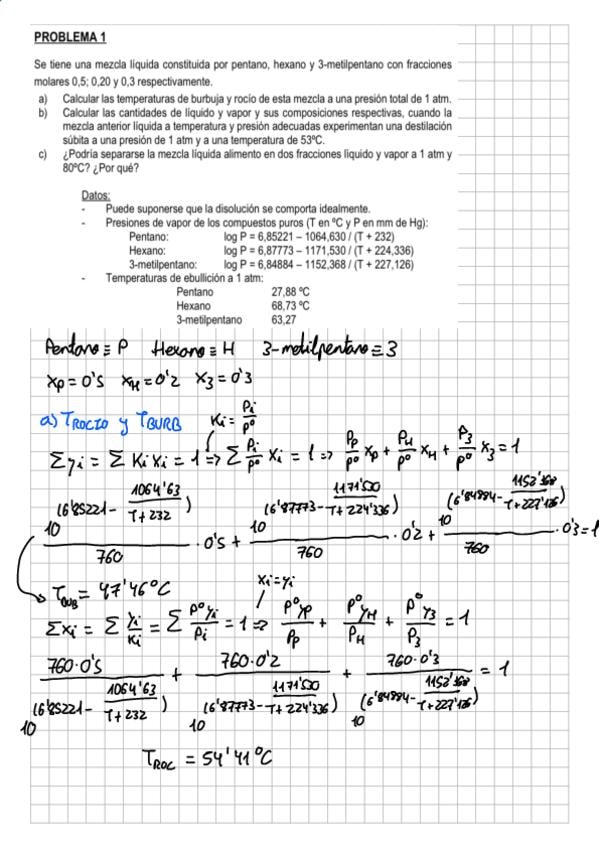 PROBLEMA 1
Se tiene una mezcla líquida constituida por pentano, hexano y 3-metilpentano con fracciones
molares 0,5; 0,20 y 0,3 respectivamente.
a) Calcular las temperaturas de burbuja y rocío de esta mezcla a una presión total de 1 atm.
b) Calcular las cantidades de líquido y vapor y sus composiciones respectivas, cuando la
mezcla anterior líquida a temperatura y presión adecuadas experimentan una destilación
súbita a una presión de 1 atm y a una temperatura de 53ºC.
c) ¿Podría separarse la mezcla líquida alimento en dos fracciones liquido y vapor a 1 atm y
80ºC? ¿Por qué?
Datos:
- Puede suponerse que la disolución se comporta idealmente.
- Presiones de vapor de los compuestos puros (T en ºC y P en mm de Hg):
Pentano: log P = 6,85221 – 1064,630 / (T + 232)
Hexano: log P = 6,87773 – 1171,530 / (T + 224,336)
3-metilpentano: log P = 6,84884 – 1152,368 / (T + 227,126)
- Temperaturas de ebullición a 1 atm:
Pentano 27,88 ºC
Hexano 68,73 ºC
3-metilpentano 63,27
Pentano ≡ P Hexano ≡ H 3-metilpentano ≡ 3
XP = 0'5 XH = 0'2 X3 = 0'3
a) TROCIO y TBURB Ki = Pi/Pº
Σyi = Σ Ki Xi = 1 => Σ Pi/Pº Xi = 1 => PP/Pº XP + PH/Pº XH + P3/Pº X3 = 1
10^(6'85221 - 1064'63/(T+232))/760 · 0'5 + 10^(6'87773 - 1171'530/(T+224'336))/760 · 0'2 + 10^(6'84884 - 1152'368/(T+227'126))/760 · 0'3 = 1
TBUB = 47'46ºC
xi = yi
Σxi = Σ yi/Ki = Σ Pºyi/Pi = 1 => PºyP/PP + PºyH/PH + Pºy3/P3 = 1
760·0'5/10^(6'85221 - 1064'63/(T+232)) + 760·0'2/10^(6'87773 - 1171'530/(T+224'336)) + 760·0'3/10^(6'84884 - 1152'368/(T+227'126)) = 1
TROC = 54'41ºC